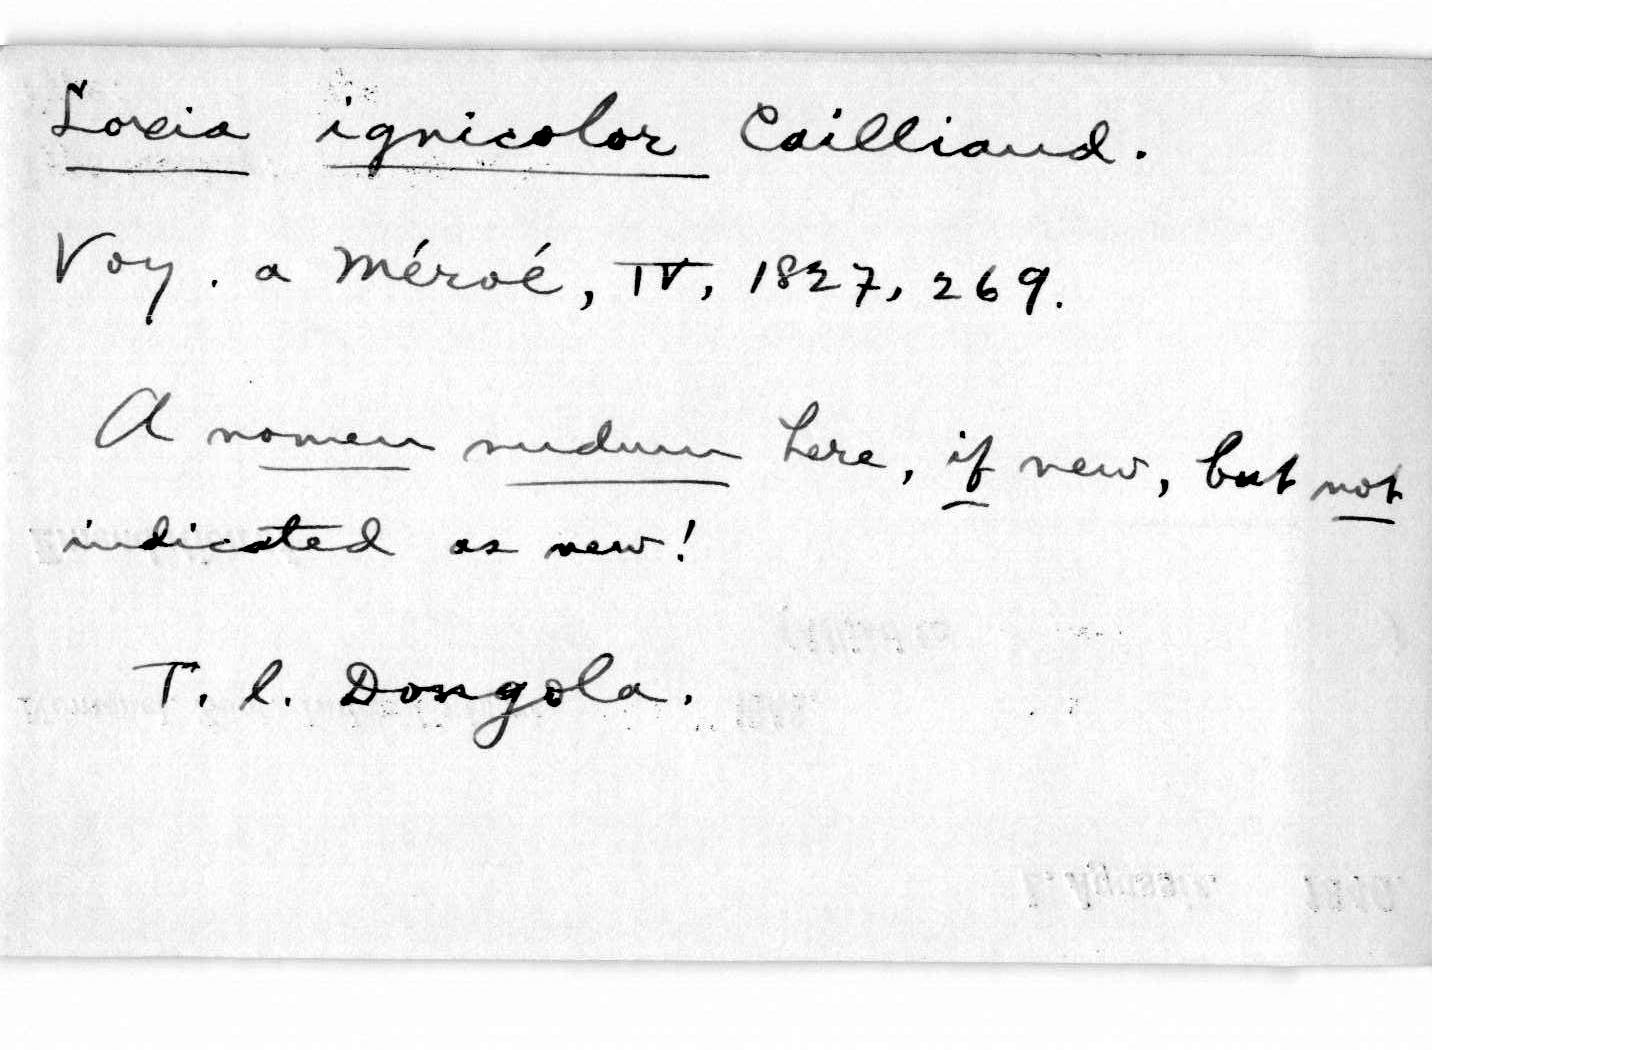 Loxia ignicolor Cailliaud.
Voy. a Méroé, IV, 1827, 269.
A nomen nudum here, if new, but not
indicated as new!
T. l. Dongola.